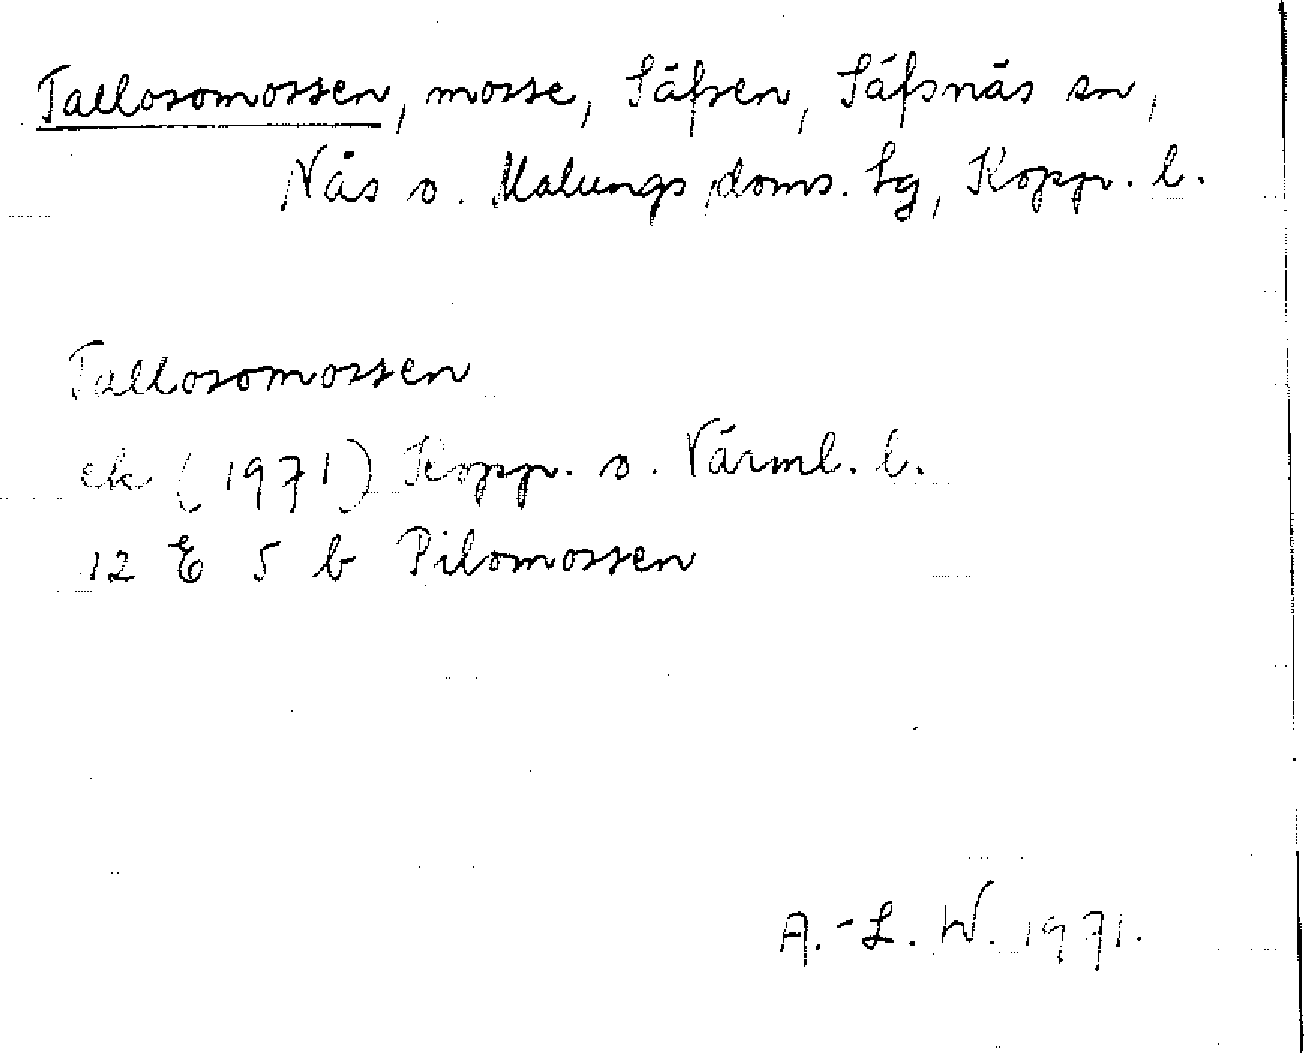 Tallosomossen, mosse, Säfsen, Säfsnäs sn,
Nås o. Malungs doms. lg, Kopp. l.
Tallosomossen
ek (1971) Kopp. o. Värml. l.
12 E 5 b Pilomossen
A.-L. W. 1971.